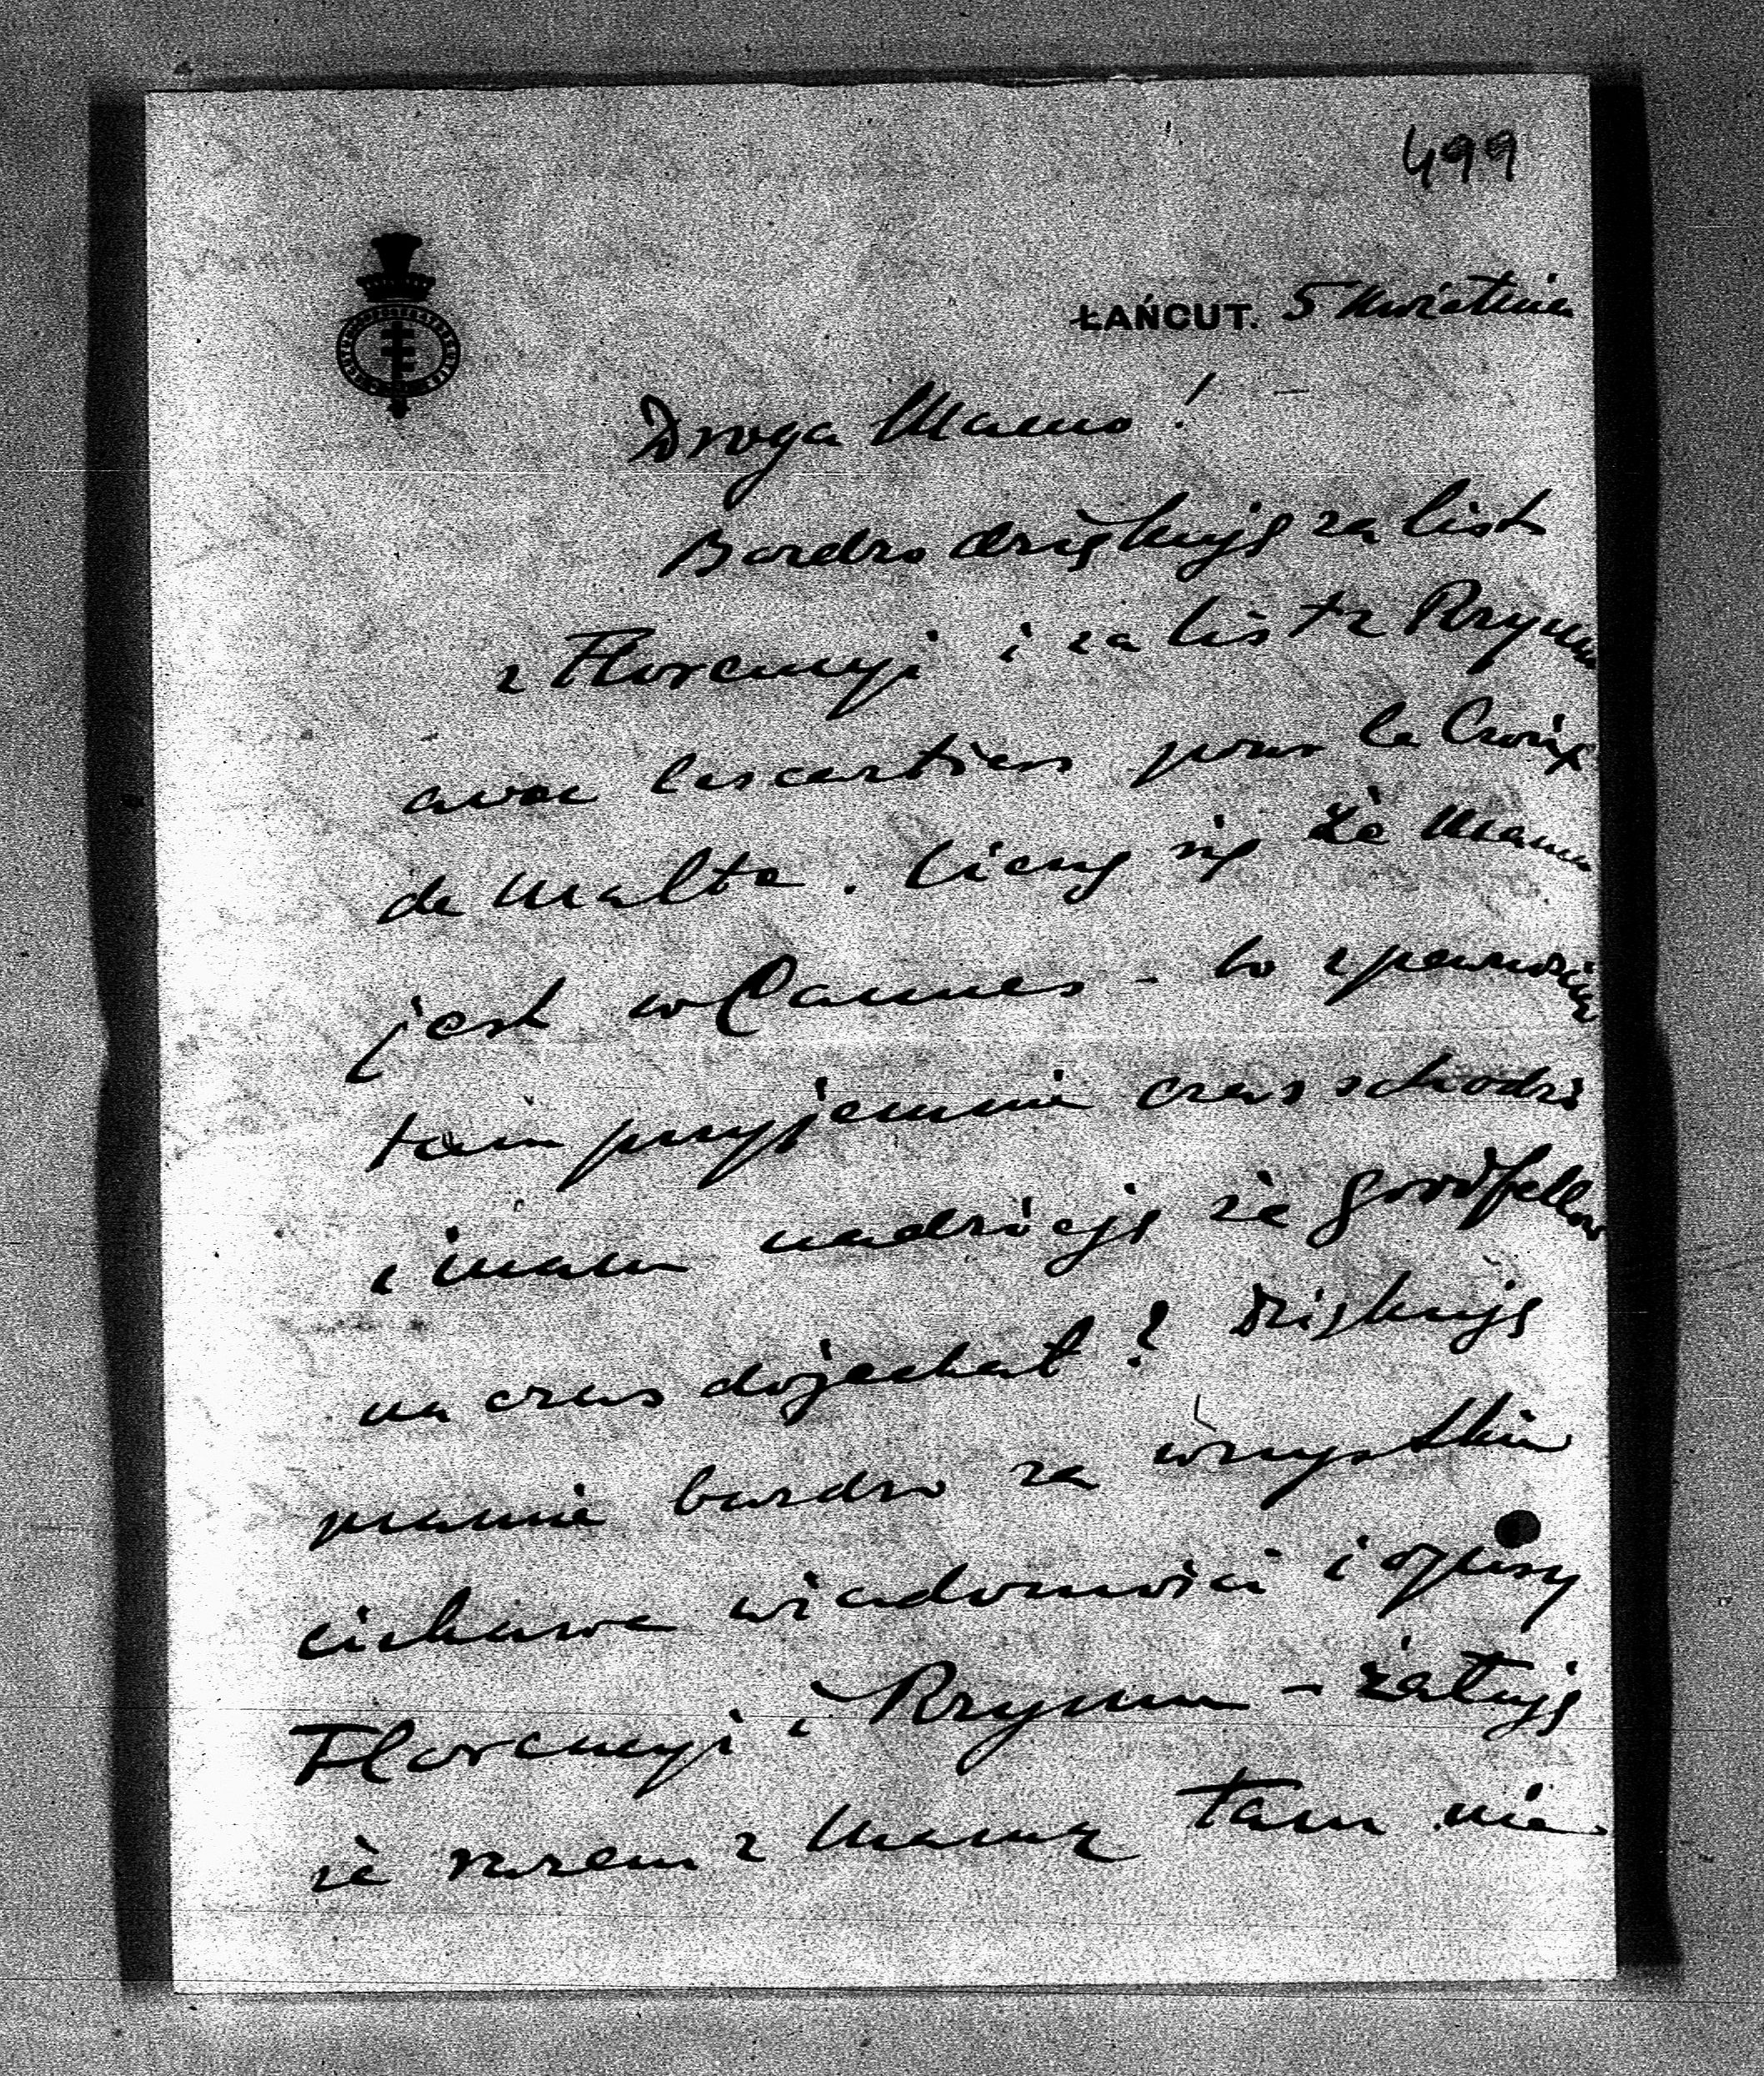 499
ŁAŃCUT. 5 Kwietnia
Droga Mamo!
Bardzo dziękuję za list
z Florencyi i za list z Rzymu
avec les cartiers pour la Croix
de Malte. Cieszę się że Mama
jest w Cannes - to z pewnością
tam przyjemnie czas schodzi
i mam nadzieję że Goodfellow
na czas dojechał? Dziękuję
Mamie bardzo za wszystkie
ciekawe wiadomości i opisy
Florencyi i Rzymu - żałuję
że razem z Mamą tam nie